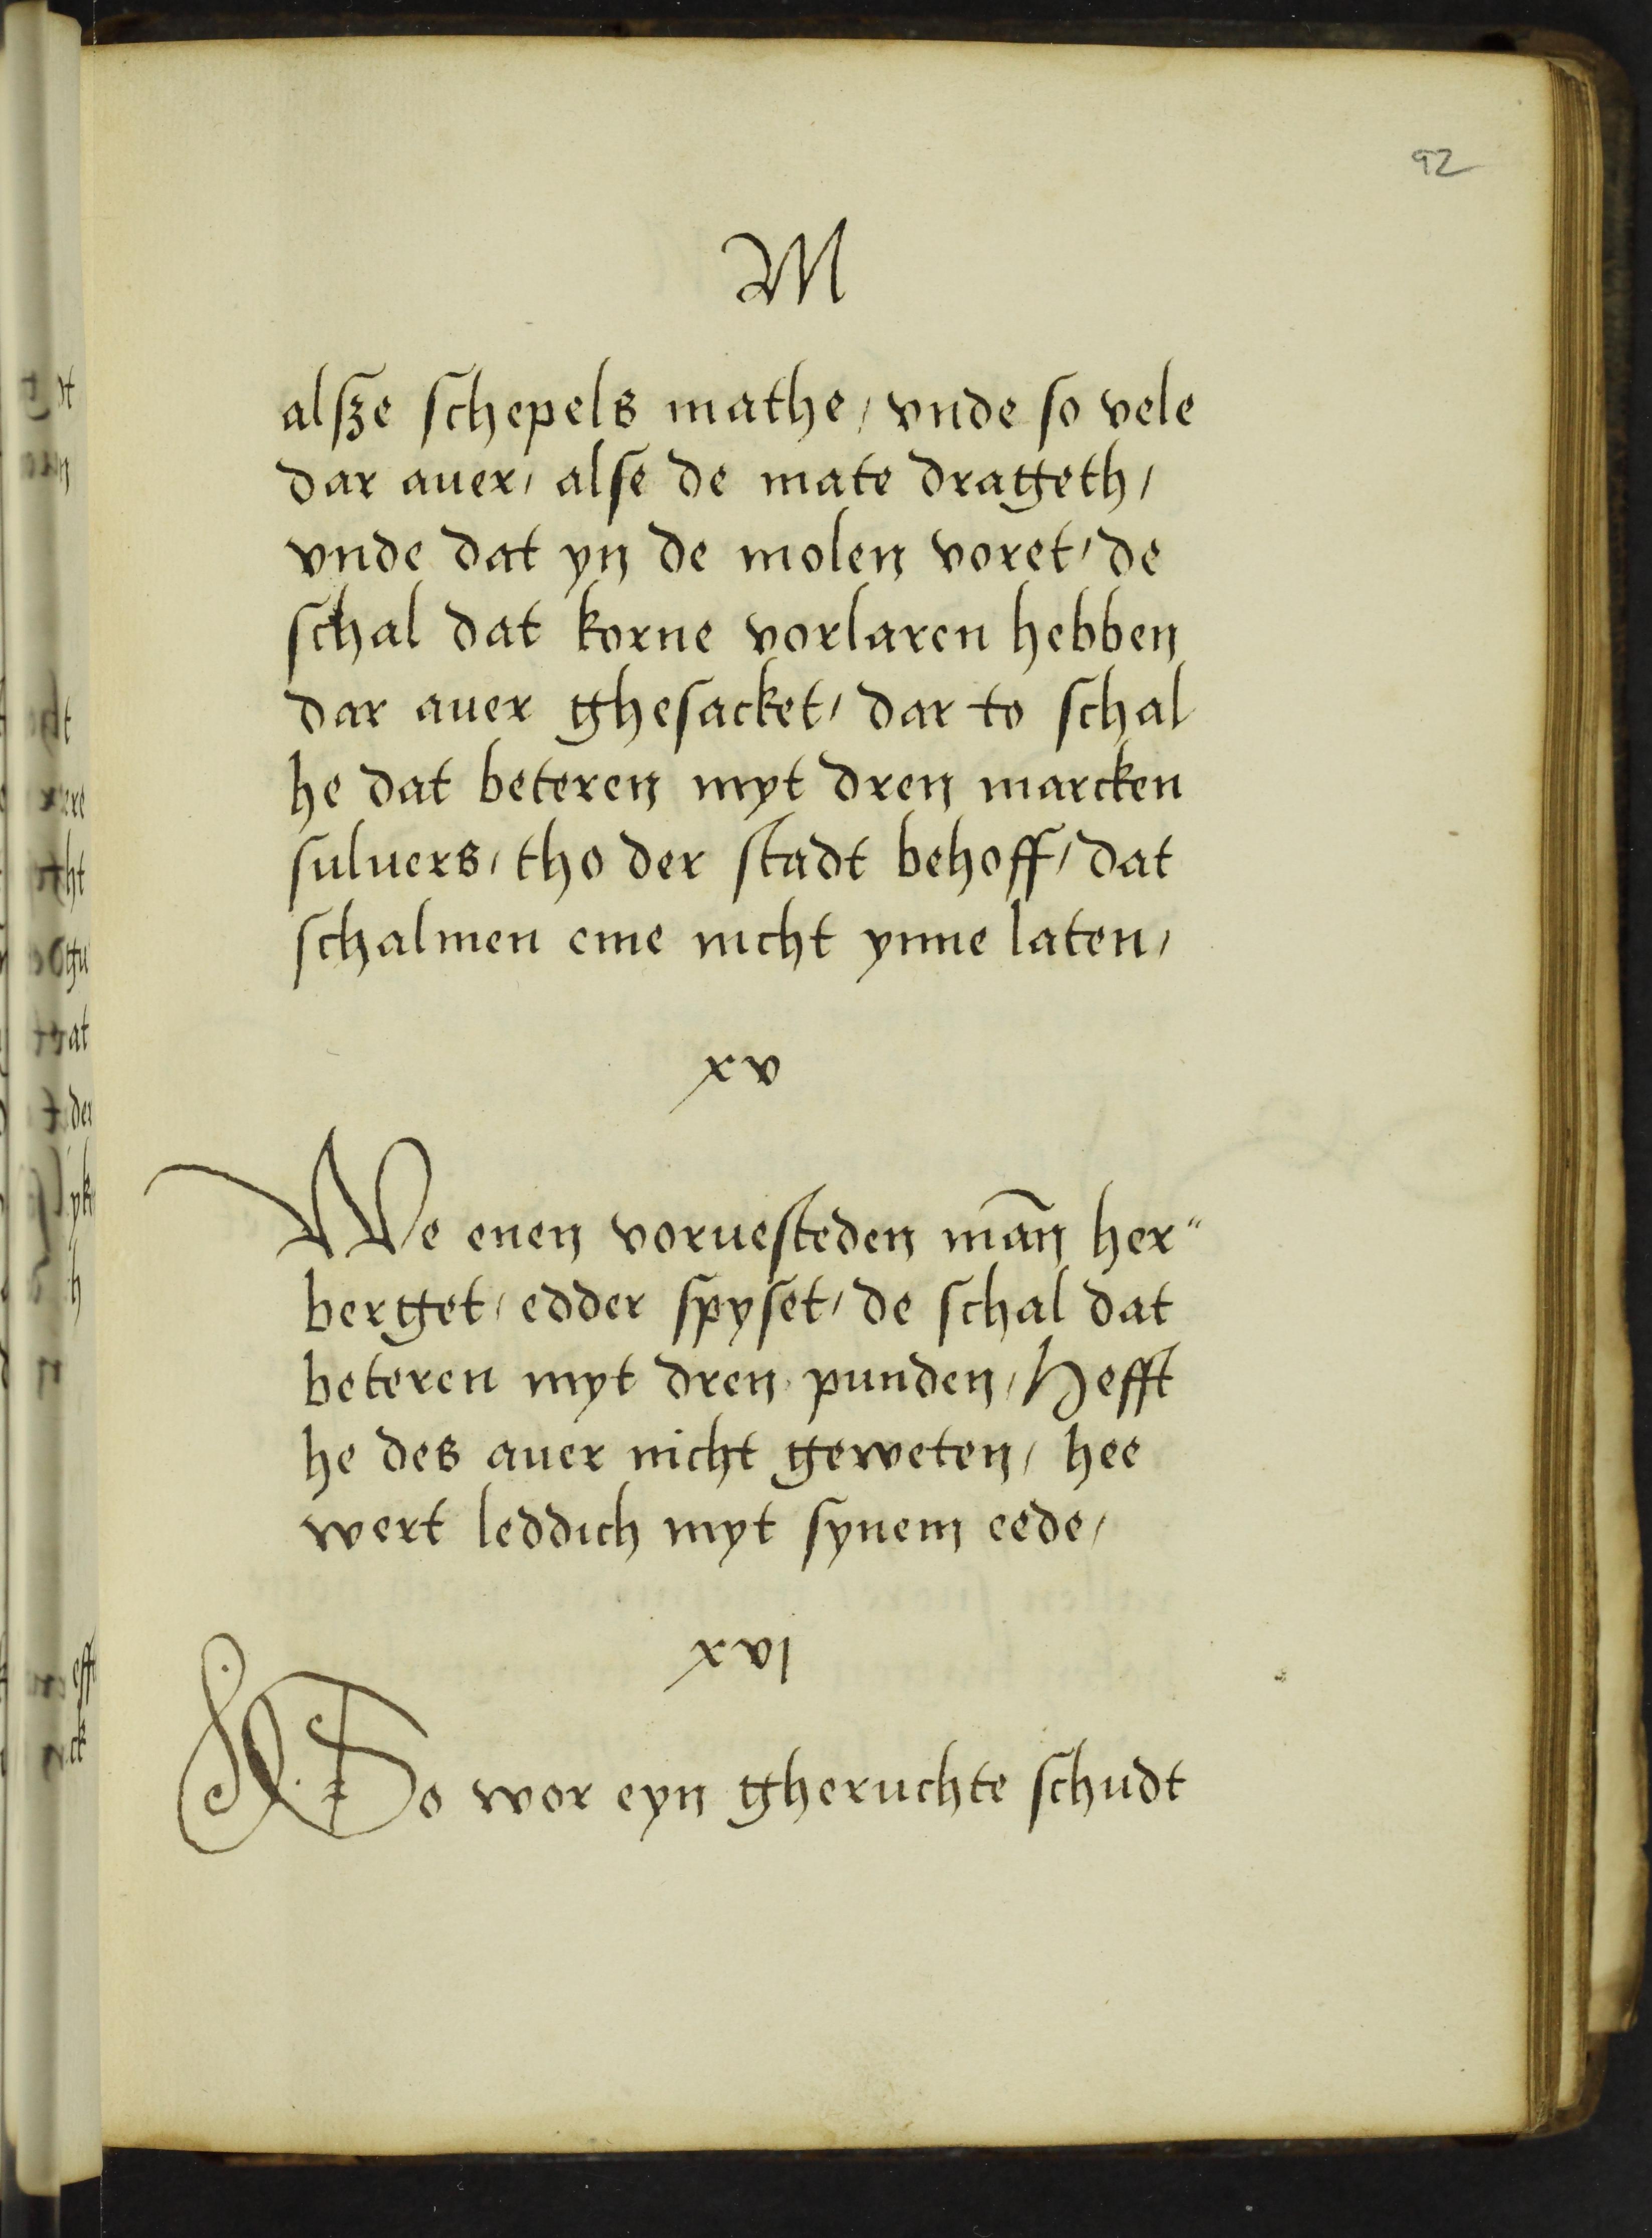 92
M
alsze schepels mathe / vnde so vele
dar auer / alse de mate drageth /
vnde dat yn de molen voret / de
schal dat korne vorlaren hebben
dar auer ghesacket / dar to schal
he dat beteren myt dren marcken
suluers / tho der stadt behoff / dat
schalmen eme nicht ynne laten /
xv
We enen voruesteden mān her"
berget / edder spyset / de schal dat
beteren myt dren punden / Hefft
he des auer nicht geweten / hee
wert leddich myt synem eede /
xvi
So wor eyn gheruchte schudt